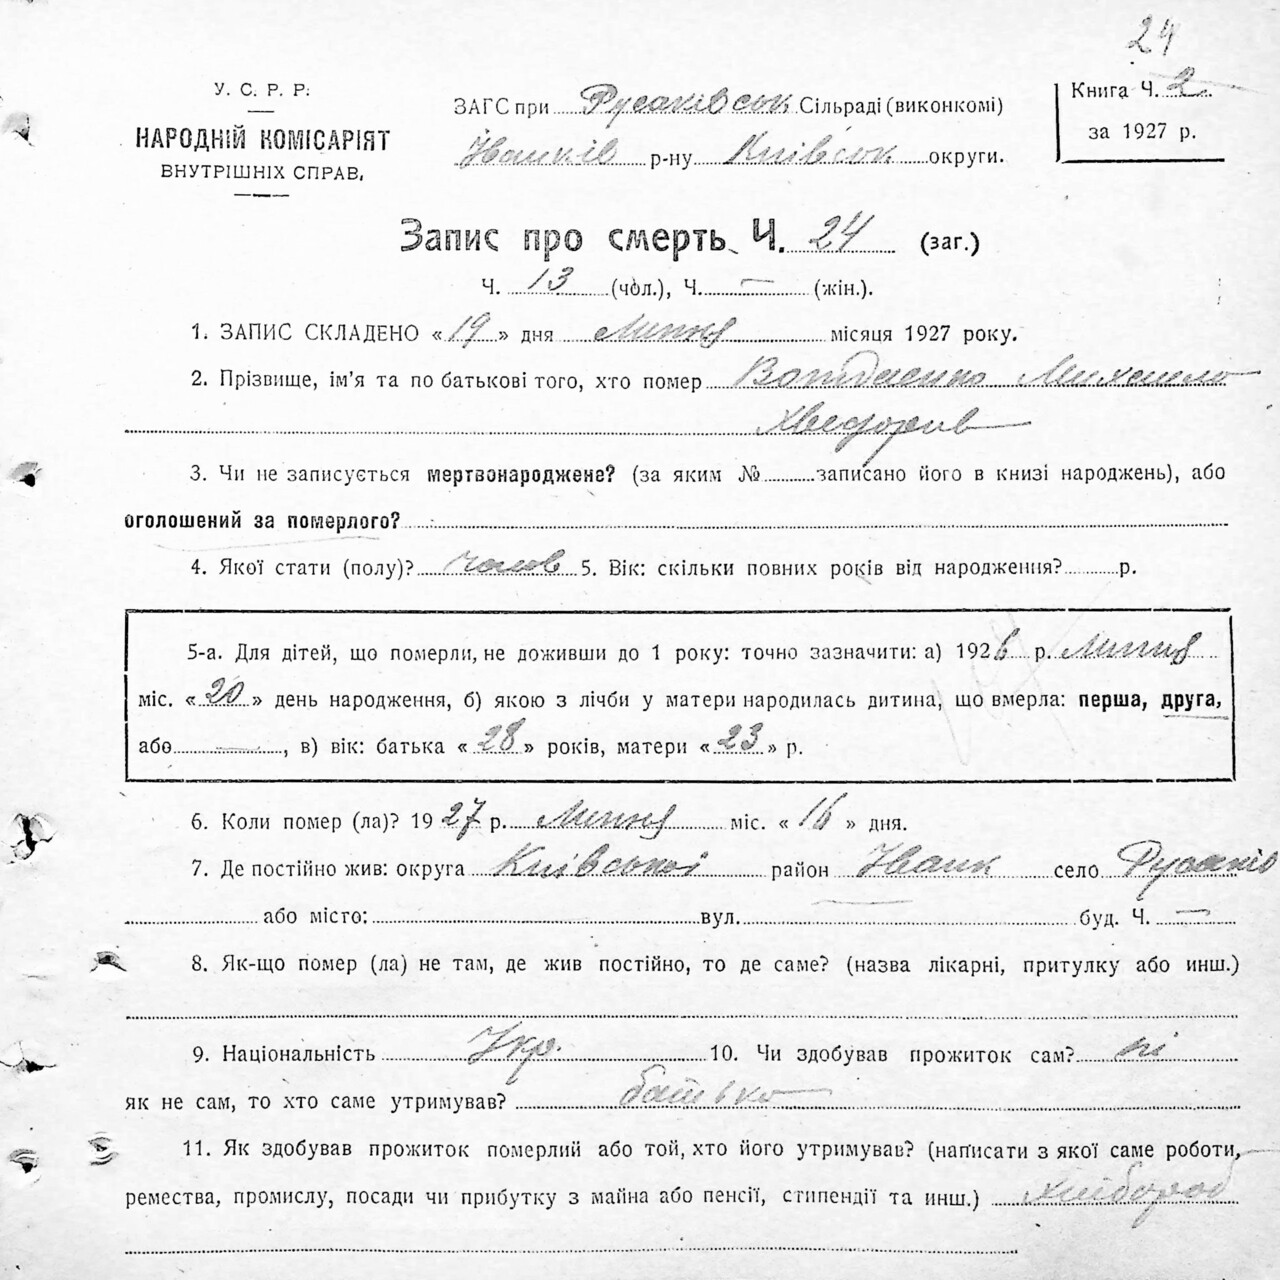 24
У. С. Р. Р.
НАРОДНІЙ КОМІСАРІЯТ
ВНУТРІШНІХ СПРАВ,
ЗАГС при Русаківськ Сільраді (виконкомі)
Іванків р-ну Київськ округи.
Книга Ч. 2
за 1927 р.
Запис про смерть Ч. 24 (заг.)
Ч. 13 (чол.), Ч. — (жін.).
1. ЗАПИС СКЛАДЕНО «19» дня Липня місяця 1927 року.
2. Прізвище, ім'я та по батькові того, хто помер Михайло
Хведорів
3. Чи не записується мертвонароджене? (за яким № записано його в книзі народжень), або
оголошений за померлого?
4. Якої стати (полу)? чолов 5. Вік: скільки повних років від народження? р.
5-а. Для дітей, що померли, не доживши до 1 року: точно зазначити: а) 1926 р. Липня
міс. «20» день народження, б) якою з лічби у матери народилась дитина, що вмерла: перша, друга,
або —, в) вік: батька «28» років, матери «23» р.
6. Коли помер (ла)? 1927 р. Липня міс. «16» дня.
7. Де постійно жив: округа Київської район Іванк село Русаків
або місто: вул. буд. Ч. —
8. Як-що помер (ла) не там, де жив постійно, то де саме? (назва лікарні, притулку або инш.)
9. Національність Укр. 10. Чи здобував прожиток сам? ні
як не сам, то хто саме утримував? батько
11. Як здобував прожиток померлий або той, хто його утримував? (написати з якої саме роботи,
ремества, промислу, посади чи прибутку з майна або пенсії, стипендії та инш.) хлібороб